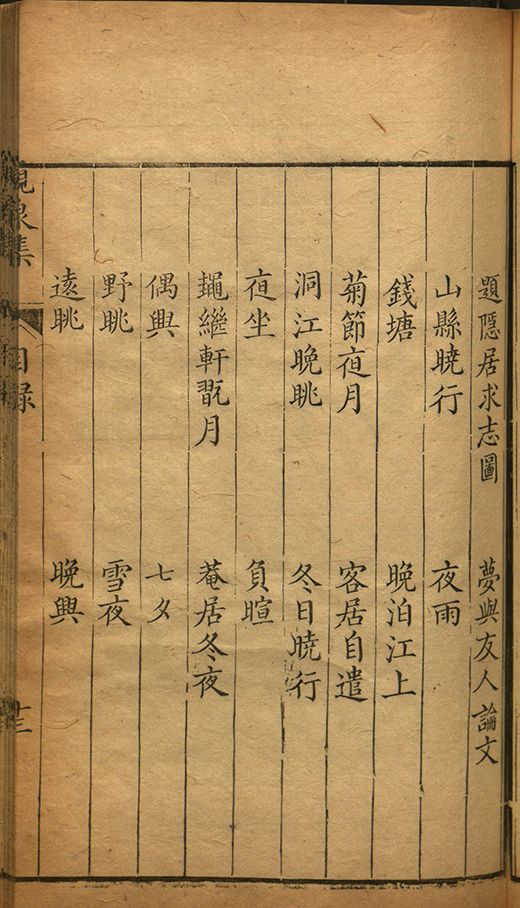 題隱居求志圖 夢與友人論文
山縣曉行 夜雨
錢塘 晚泊江上
菊節夜月 客居自遣
洞江晚眺 冬日曉行
夜坐 負暄
繩繼軒翫月 菴居冬夜
偶興 七夕
野眺 雪夜
遠眺 晚興
象集 目錄 十三